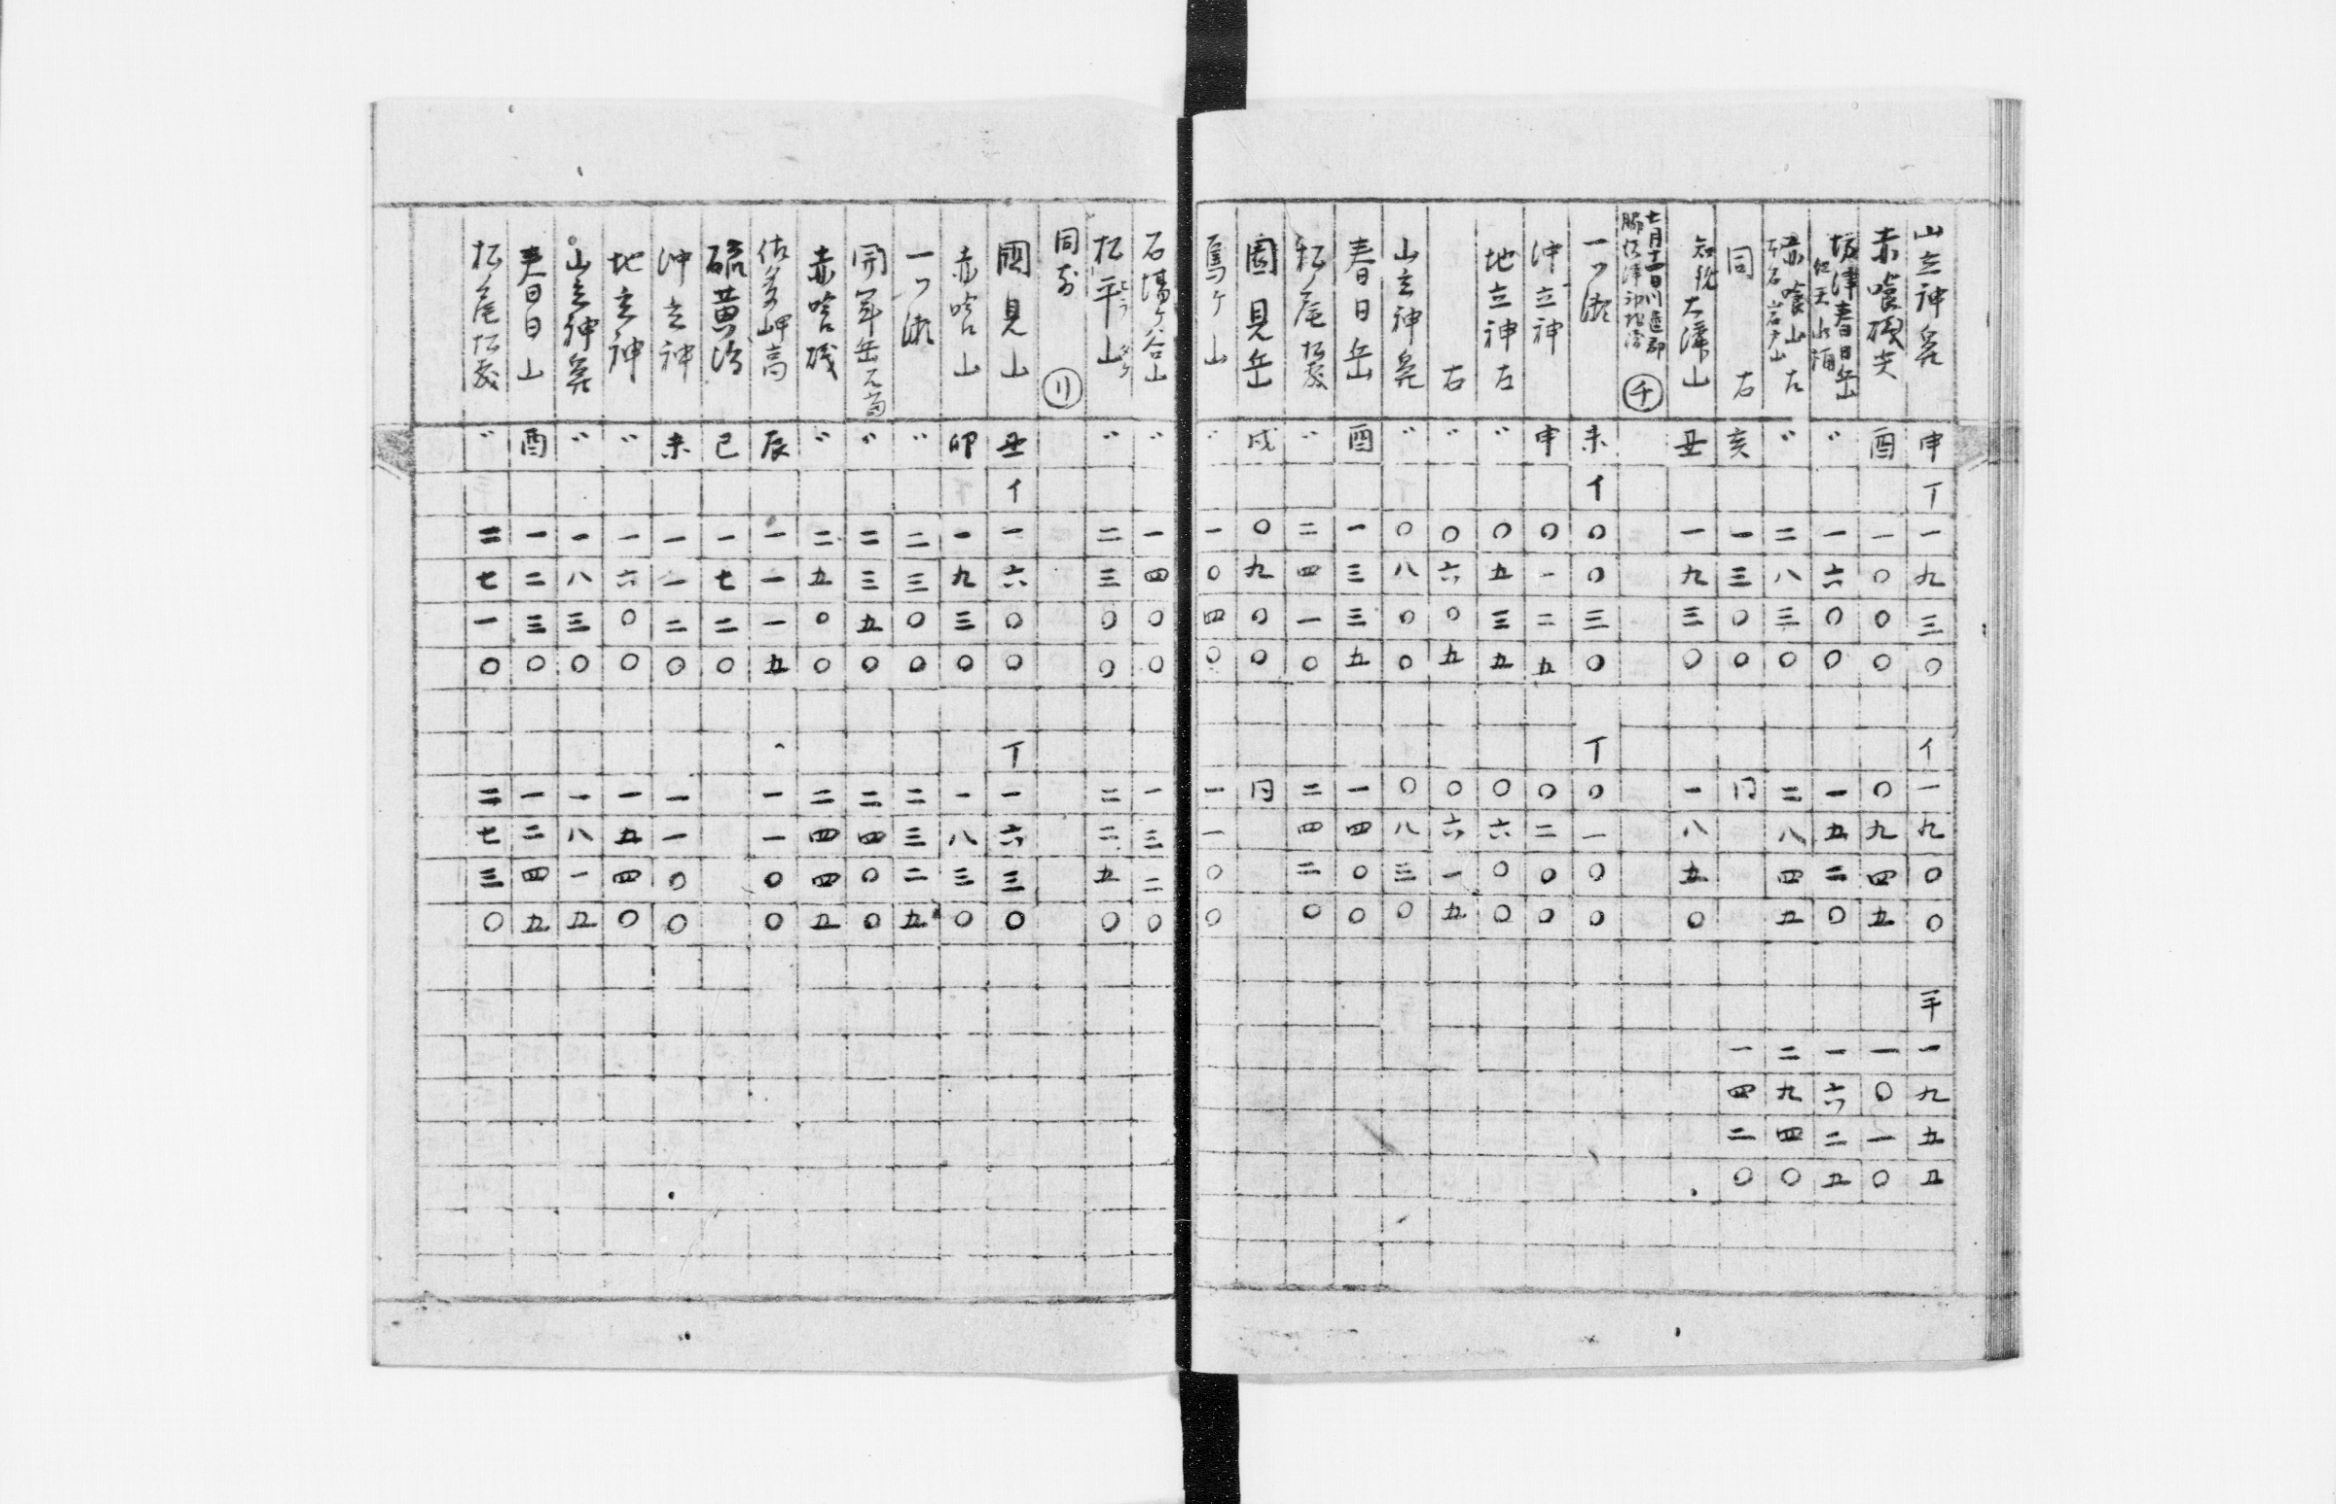 山立神鼻 申 丁 一九三〇 イ 一九〇〇 千 一九五五
赤喰礁尖 酉 一〇〇〇 〇九四五 一〇一〇
坂津春日岳 〃 一六〇〇 一五二〇 一六二五
赤喰山 左 〃 二八三〇 二八四五 二九四〇
同 右 亥 一三〇〇 同 一四二〇
知覧 大澤山 丑 一九三〇 一八五〇
七月十二日川邊郡 千
一ツ瀬 未 イ 〇〇三〇 丁 〇一〇〇
沖立神 申 〇一二五 〇二〇〇
地立神 左 〃 〇五三五 〇六〇〇
右 〃 〇六〇五 〇六一五
山立神鼻 〃 〇八〇〇 〇八三〇
春日岳 酉 一三三五 一四〇〇
松尾 〃 二四一〇 二四二〇
國見岳 戌 〇九〇〇 同
ヶ山 〃 一〇四〇 一一〇〇
石場ヶ谷山 〃 一四〇〇 一三二〇
松平山 〃 二三〇〇 二二五〇
同 リ
國見山 丑 イ 一六〇〇 丁 一六三〇
赤喰山 卯 一九三〇 一八三〇
一ツ瀬 〃 二三〇〇 二三二五
開聞岳 〃 二三五〇 二四〇〇
赤喰礒 〃 二五〇〇 二四四五
佐多岬高 辰 一一一五 一一〇〇
硫黄 巳 一七二〇
沖立神 未 一一二〇 一一〇〇
地立神 〃 一六〇〇 一五四〇
山立神鼻 〃 一八三〇 一八一五
春日山 酉 一二三〇 一二四五
松尾 〃 二七一〇 二七三〇